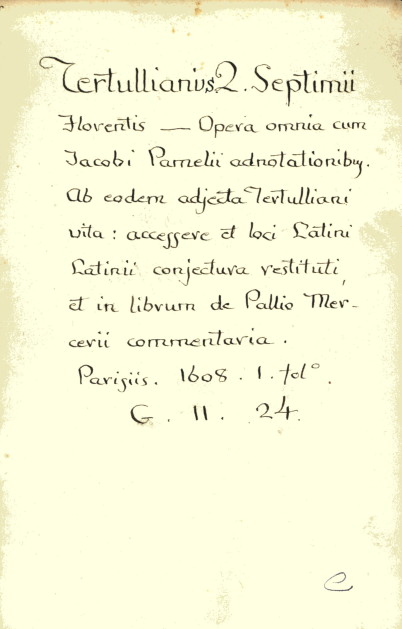 Tertullianus Q. Septimii
Florentis — Opera omnia cum
Jacobi Pamelii adnotationibus.
Ab eodem adjecta Tertulliani
vita : accessere et loci Latini
Latinii conjectura restituti,
et in librum de Pallio Mer-
cerii commentaria.
Parisiis. 1608. 1. fol°.
G. II. 24.
e